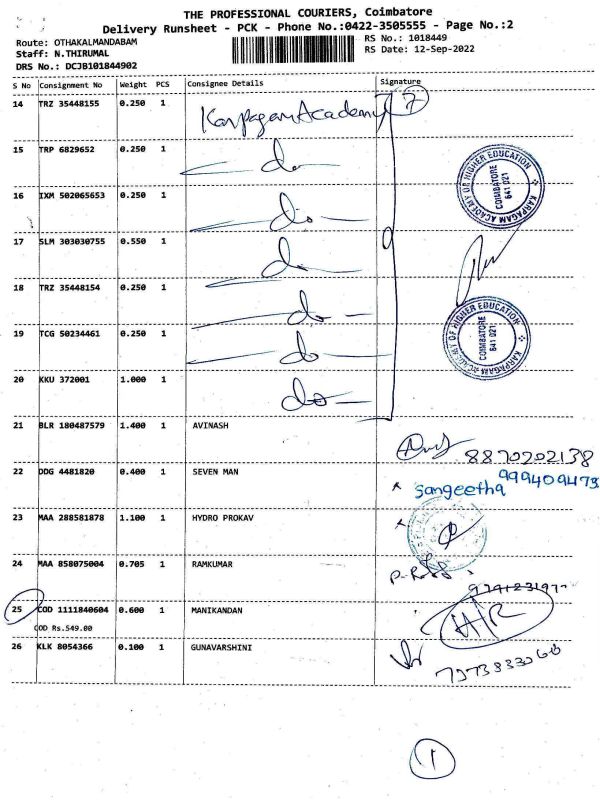 THE PROFESSIONAL COURIERS, Coimbatore
Delivery Runsheet - PCK - Phone No.:0422-3505555 - Page No.:2
Route: OTHAKALMANDABAM
RS No.: 1018449
Staff: N.THIRUMAL
RS Date: 12-Sep-2022
DRS No.: DCJB101844902
S No Consignment No Weight PCS Consignee Details Signature
14 TRZ 35448155 0.250 1 Karpagam Academy 7
15 TRP 6829652 0.250 1 do
16 IXM 502065653 0.250 1 do
17 SLM 303030755 0.550 1 do
18 TRZ 35448154 0.250 1 do
19 TCG 50234461 0.250 1 do
20 KKU 372001 1.000 1 do
KARPAGAM ACADEMY OF HIGHER EDUCATION
COIMBATORE
641 021
KARPAGAM ACADEMY OF HIGHER EDUCATION
COIMBATORE
641 021
21 BLR 180487579 1.400 1 AVINASH
8870202138
22 DDG 4481820 0.400 1 SEVEN MAN
sangeetha
23 MAA 288581878 1.100 1 HYDRO PROKAV
24 MAA 858075004 0.705 1 RAMKUMAR
25 COD 1111840604 0.600 1 MANIKANDAN
COD Rs.549.00
26 KLK 8054366 0.100 1 GUNAVARSHINI
1